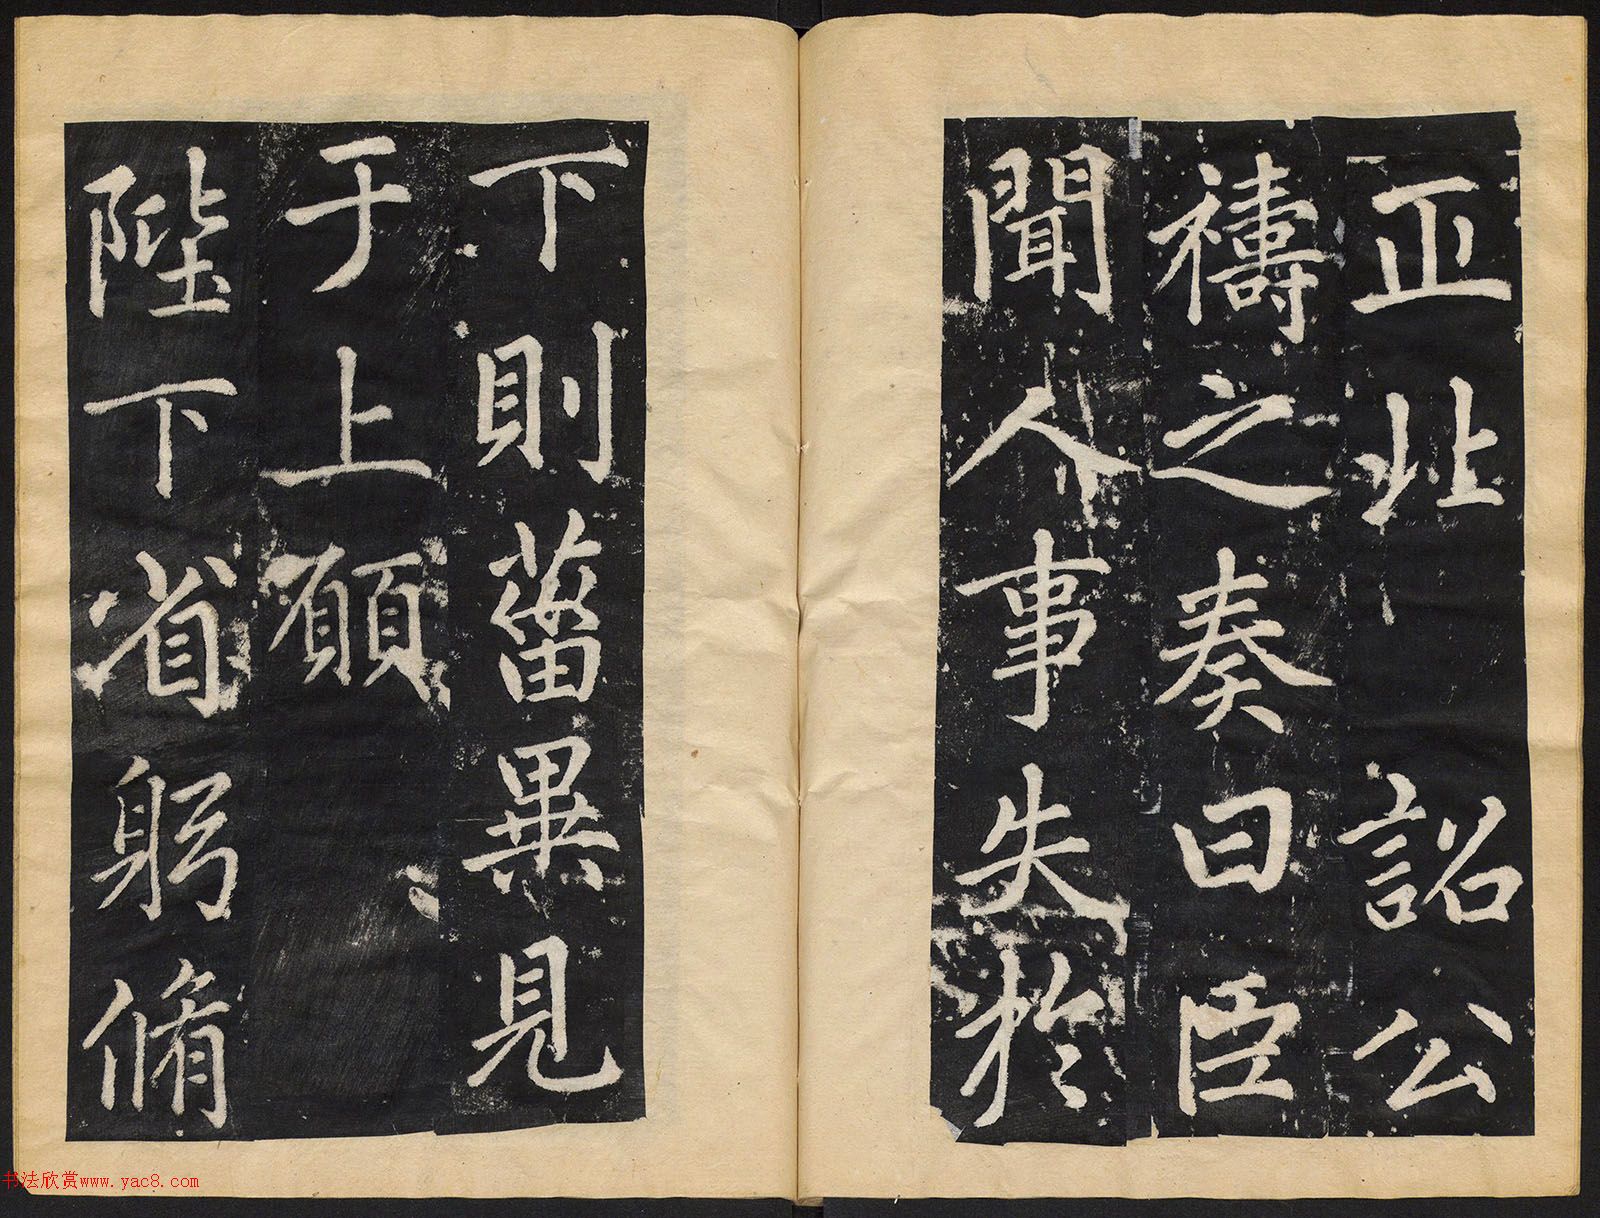 正北 詔公
禱之奏曰臣
聞人事失於
下則菑異見
于上願
陛下省躬脩
书法欣赏www.yac8.com